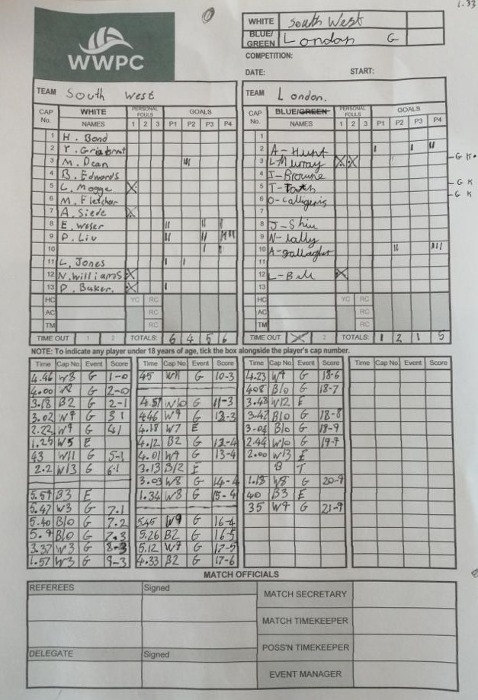 1.33
WWPC
WHITE South West
BLUE/GREEN London G
COMPETITION:
DATE: START:
TEAM South West
CAP No. WHITE NAMES PERSONAL FOULS 1 2 3 GOALS P1 P2 P3 P4
1 H. Bond
2
3 M. Dean II
4 B. Edwards
5 L. X
6 M. Fletcher
7 A. Siede X
8 E. Weser
9 D. Liu
10
11 L. Jones I I
12 N. Williams X
13 D. Baker X
HC YC RC
AC RC
TM RC
TIME OUT 1 2 TOTALS 6 4 5 6
TEAM London.
CAP No. BLUE/GREEN NAMES PERSONAL FOULS 1 2 3 GOALS P1 P2 P3 P4
1
2 A- Hunt I I II
3 L Murray X X
4 I- Browne
5
6
7
8
9 N- Lally
10 A- gallagher II III
11
12 L- X
13
HC YC RC
AC RC
TM RC
TIME OUT X 2 TOTALS 1 2 1 5
NOTE: To indicate any player under 18 years of age, tick the box alongside the player's cap number.
Time Cap No. Event Score Time Cap No. Event Score Time Cap No. Event Score Time Cap No. Event Score
4.46 W8 G 1-0 45 W11 G 10-3 4.23 W9 G 18-6
4.00 G 2-0 408 B10 G 18-7
3.18 B2 G 2-1 4.57 W10 G 11-3 3.48 W12 E
3.02 W9 G 31 446 W9 G 3.42 B10 G 18-8
2.22 W9 G 41 4.18 W7 E 3.06 B10 G 18-9
1.25 W5 E 4.12 B2 G 12-4 2.44 W10 G 19-9
43 W11 G 5-1 4.01 W9 G 13-4 2.00 W13 E
2.2 W13 G 6-1 3.13 B12 E B T
3.03 W8 G 14-4 1.18 W8 G 20-9
5.59 B3 E 1.34 W8 G 15-4 40 B3 E
5.47 W3 G 7.1 35 W9 G 21-9
5.40 B10 G 7.2 5.45 W9 G 16-4
B10 G 7.3 5.26 B2 G 16-5
3.37 W3 G 8-3 5.12 W9 G 17-5
1.57 W3 G 9-3 4.33 B2 G 17-6
MATCH OFFICIALS
REFEREES Signed MATCH SECRETARY
MATCH TIMEKEEPER
DELEGATE Signed POSS'N TIMEKEEPER
EVENT MANAGER